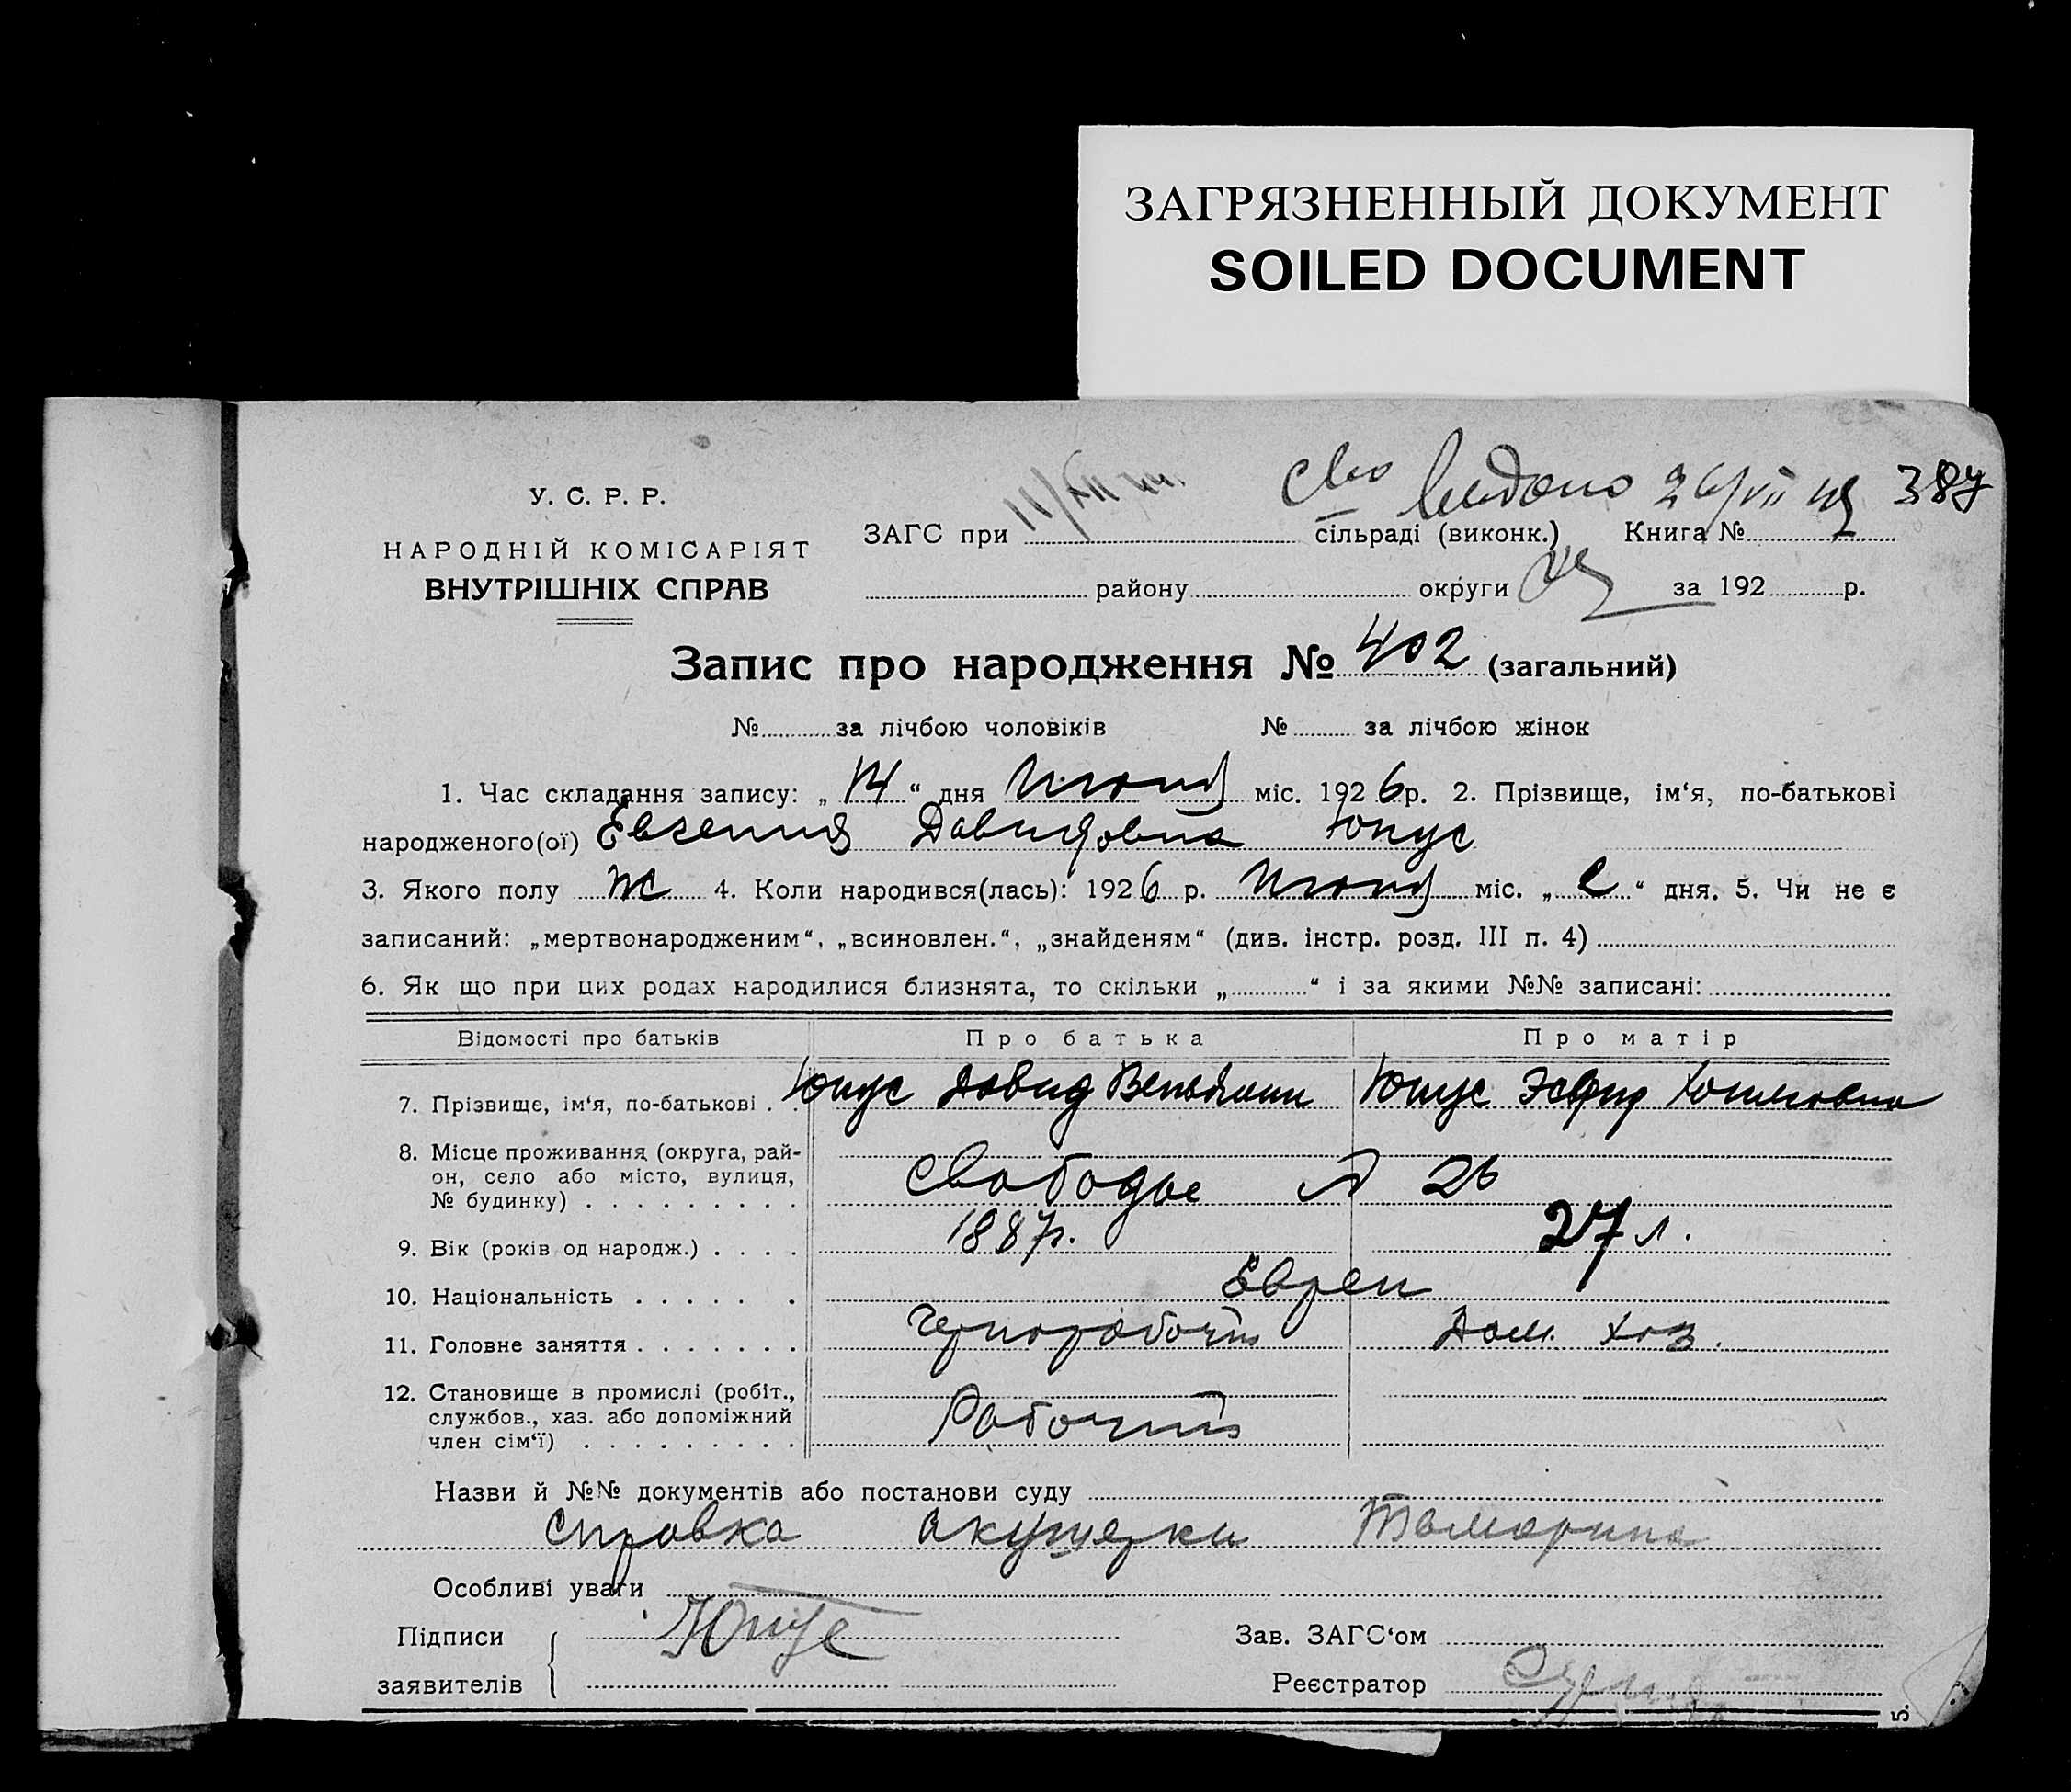 ЗАГРЯЗНЕННЫЙ ДОКУМЕНТ
SOILED DOCUMENT
387
У. С. Р. Р.
НАРОДНІЙ КОМІСАРІЯТ
ВНУТРІШНІХ СПРАВ
видано
ЗАГС при сільраді (виконк.) Книга №
району округи за 192 р.
Запис про народження № 402 (загальний)
№ за лічбою чоловіків № за лічбою жінок
1. Час складання запису: „14“ дня Июня міс. 1926р. 2. Прізвище, ім‘я, по-батькові
народженого(ої) Евгения Давидовна Юнус
3. Якого полу ж 4. Коли народився(лась): 1926 р. Июня міс. „ “ дня. 5. Чи не є
записаний: „мертвонародженим“, „всиновлен.“, „знайденям“ (див. інстр. розд. III п. 4)
6. Як що при цих родах народилися близнята, то скільки „ “ і за якими №№ записані:
Відомості про батьків Про батька Про матір
7. Прізвище, ім‘я, по-батькові Юнус Давид Юнус Эсфир
8. Місце проживання (округа, рай-
он, село або місто, вулиця,
№ будинку) Свободы 26
9. Вік (років од народж.) 1887р. 27 л.
10. Національність Евреи
11. Головне заняття Чернорабочий Дом. хоз.
12. Становище в промислі (робіт.,
службов., хаз. або допоміжний
член сім‘ї) Рабочий
Назви й №№ документів або постанови суду
Справка акушерки
Особливі уваги
Підписи Юнус Зав. ЗАГС‘ом
заявителів Реєстратор
5.